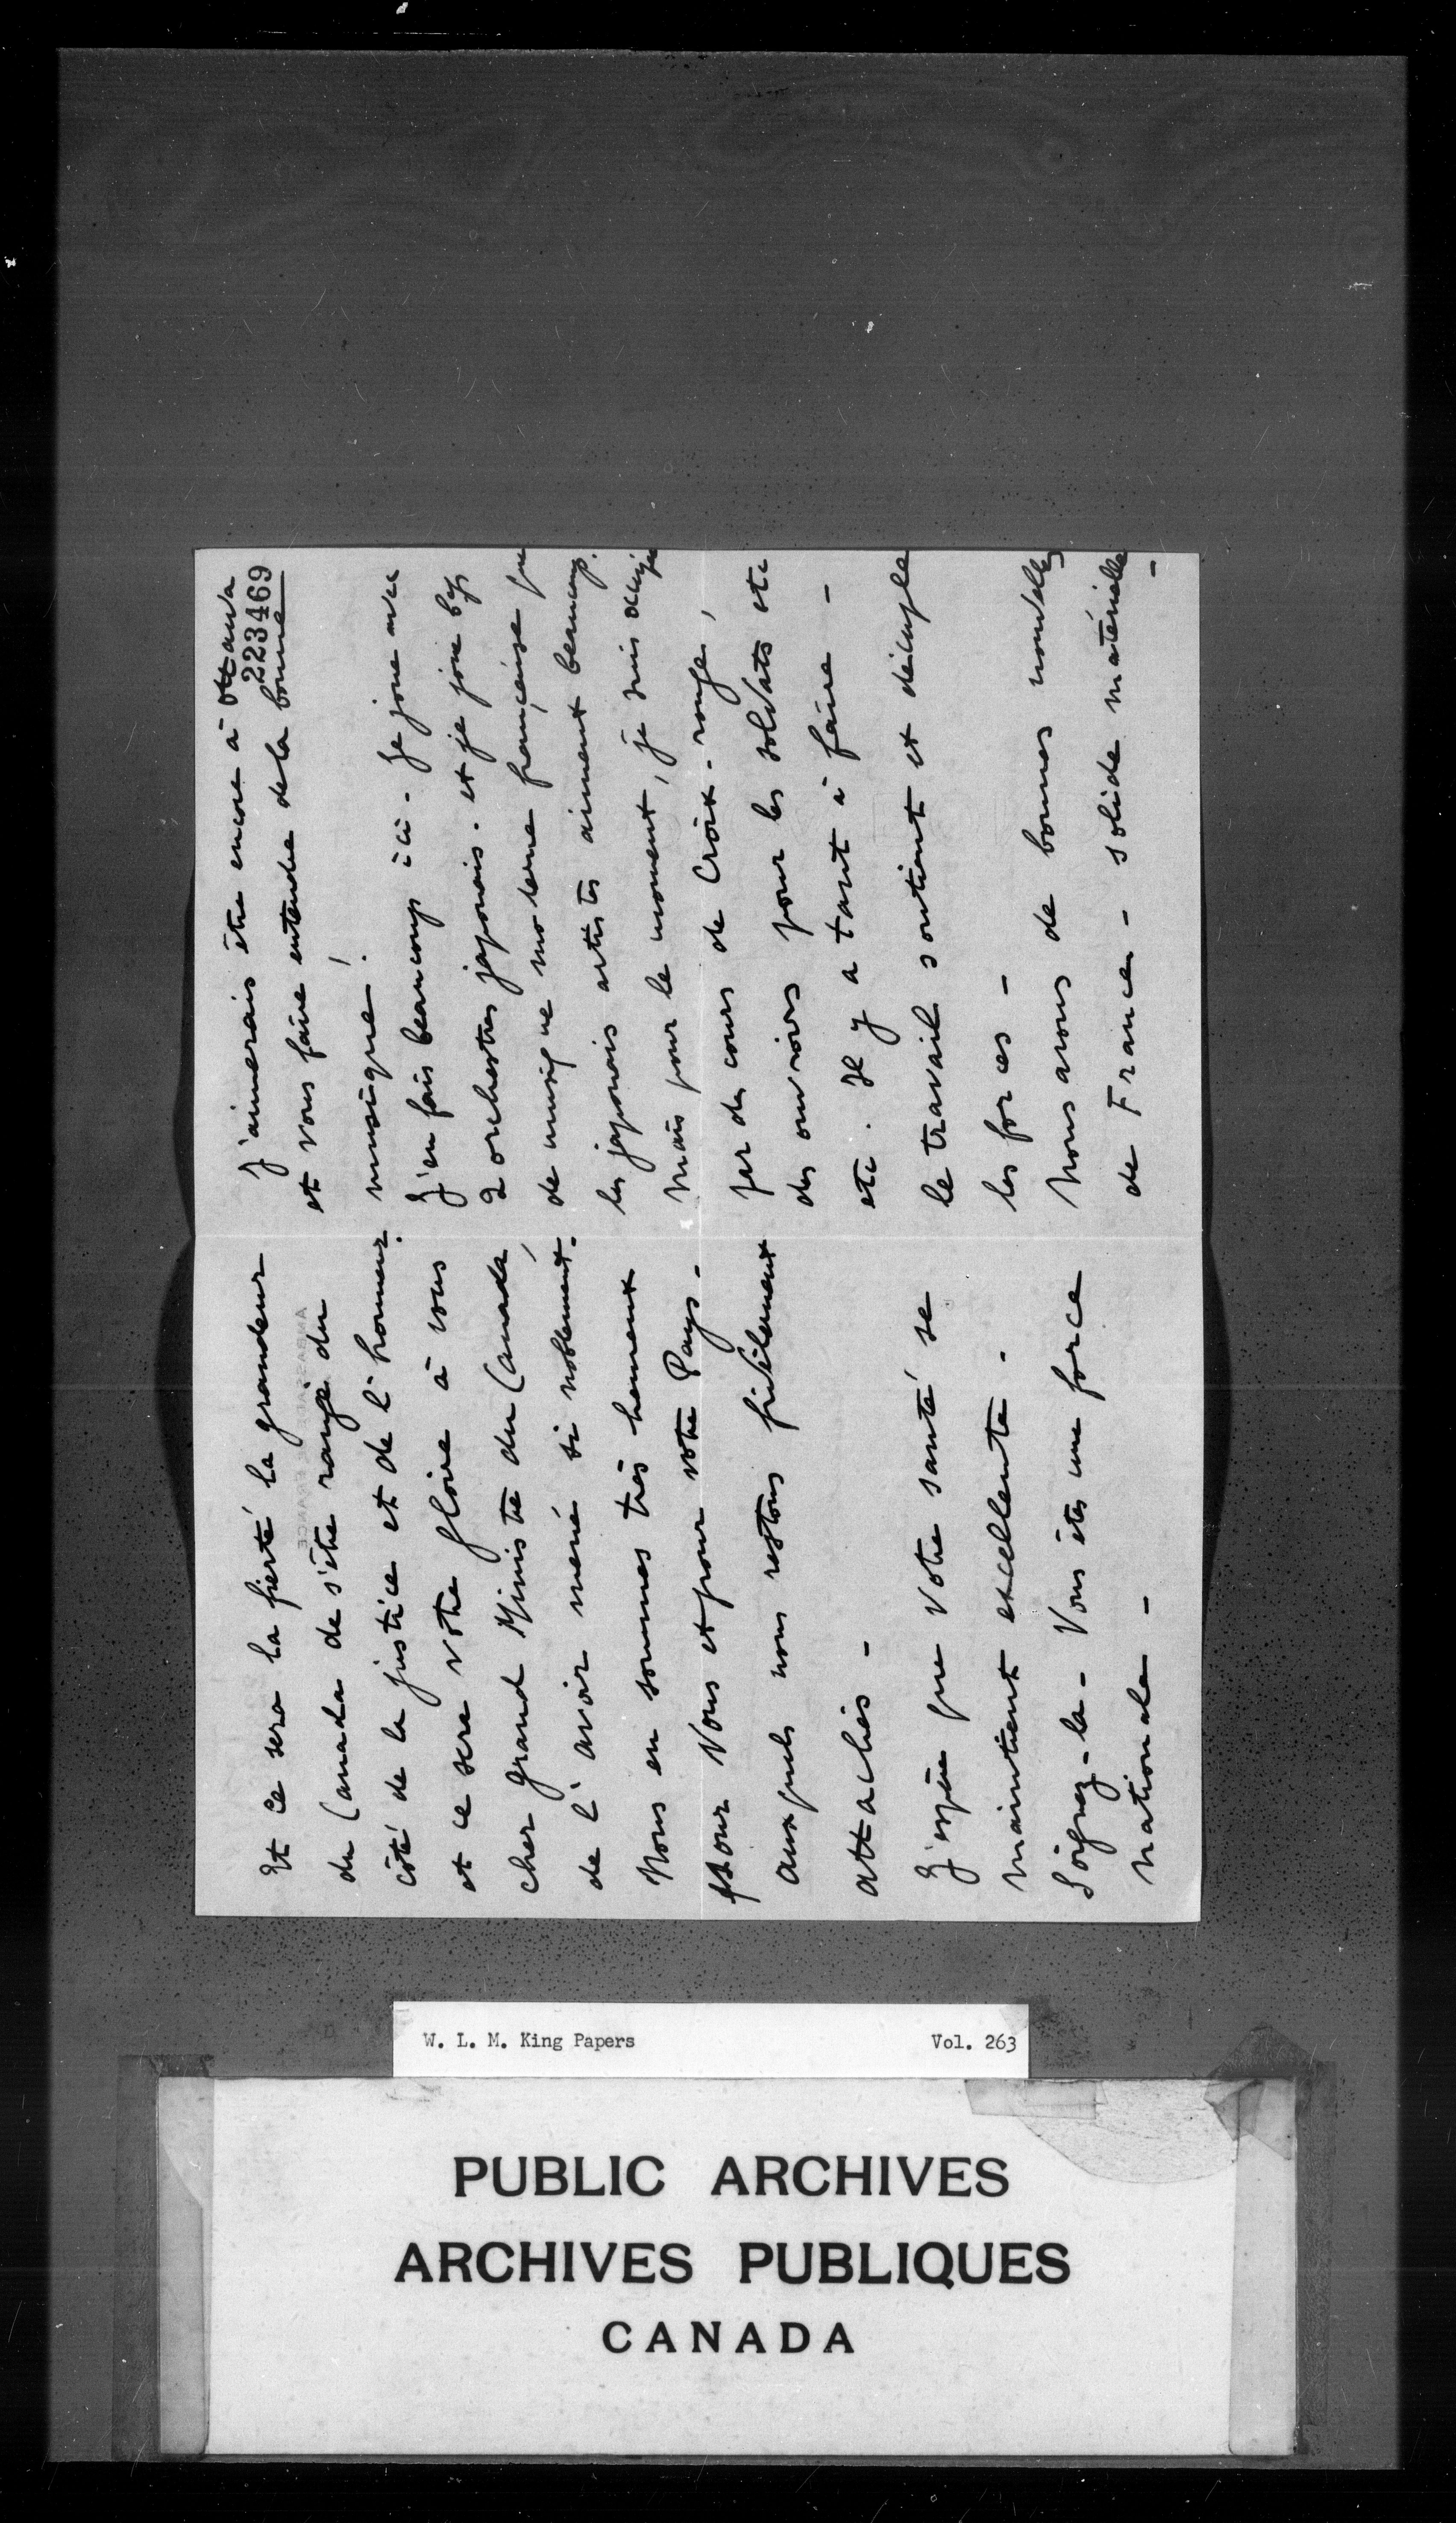 Et ce sera la fierté la grandeur
du Canada de s'être rangé du
côté de la justice et de l'honneur.
et ce sera votre gloire à vous
cher grand Ministre du Canada,
de l'avoir mené si noblement.
Nous en sommes très heureux
pour Vous et pour votre Pays.
auxquels nous restons fidèlement
attachés -
J'espère que votre santé se
maintient excellente.
Soignez-la - Vous êtes une force
nationale -
J'aimerais être encore à Ottawa
223469
et vous faire entendre de la bonne
musique!
J'en fais beaucoup ici. Je joue avec
2 orchestres japonais. et je joue bcp
de musique moderne française que
les japonais artistes aiment beaucoup.
Mais pour le moment, je suis occupée
par des cours de Croix-rouge,
des ouvroirs pour les soldats etc
etc. Il y a tant à faire -
le travail soutient et décuple
les forces -
Nous avons de bonnes nouvelles
de France - solide matérielle
-
AMBASSADE DE FRANCE
W. L. M. King Papers Vol. 263
PUBLIC ARCHIVES
ARCHIVES PUBLIQUES
CANADA